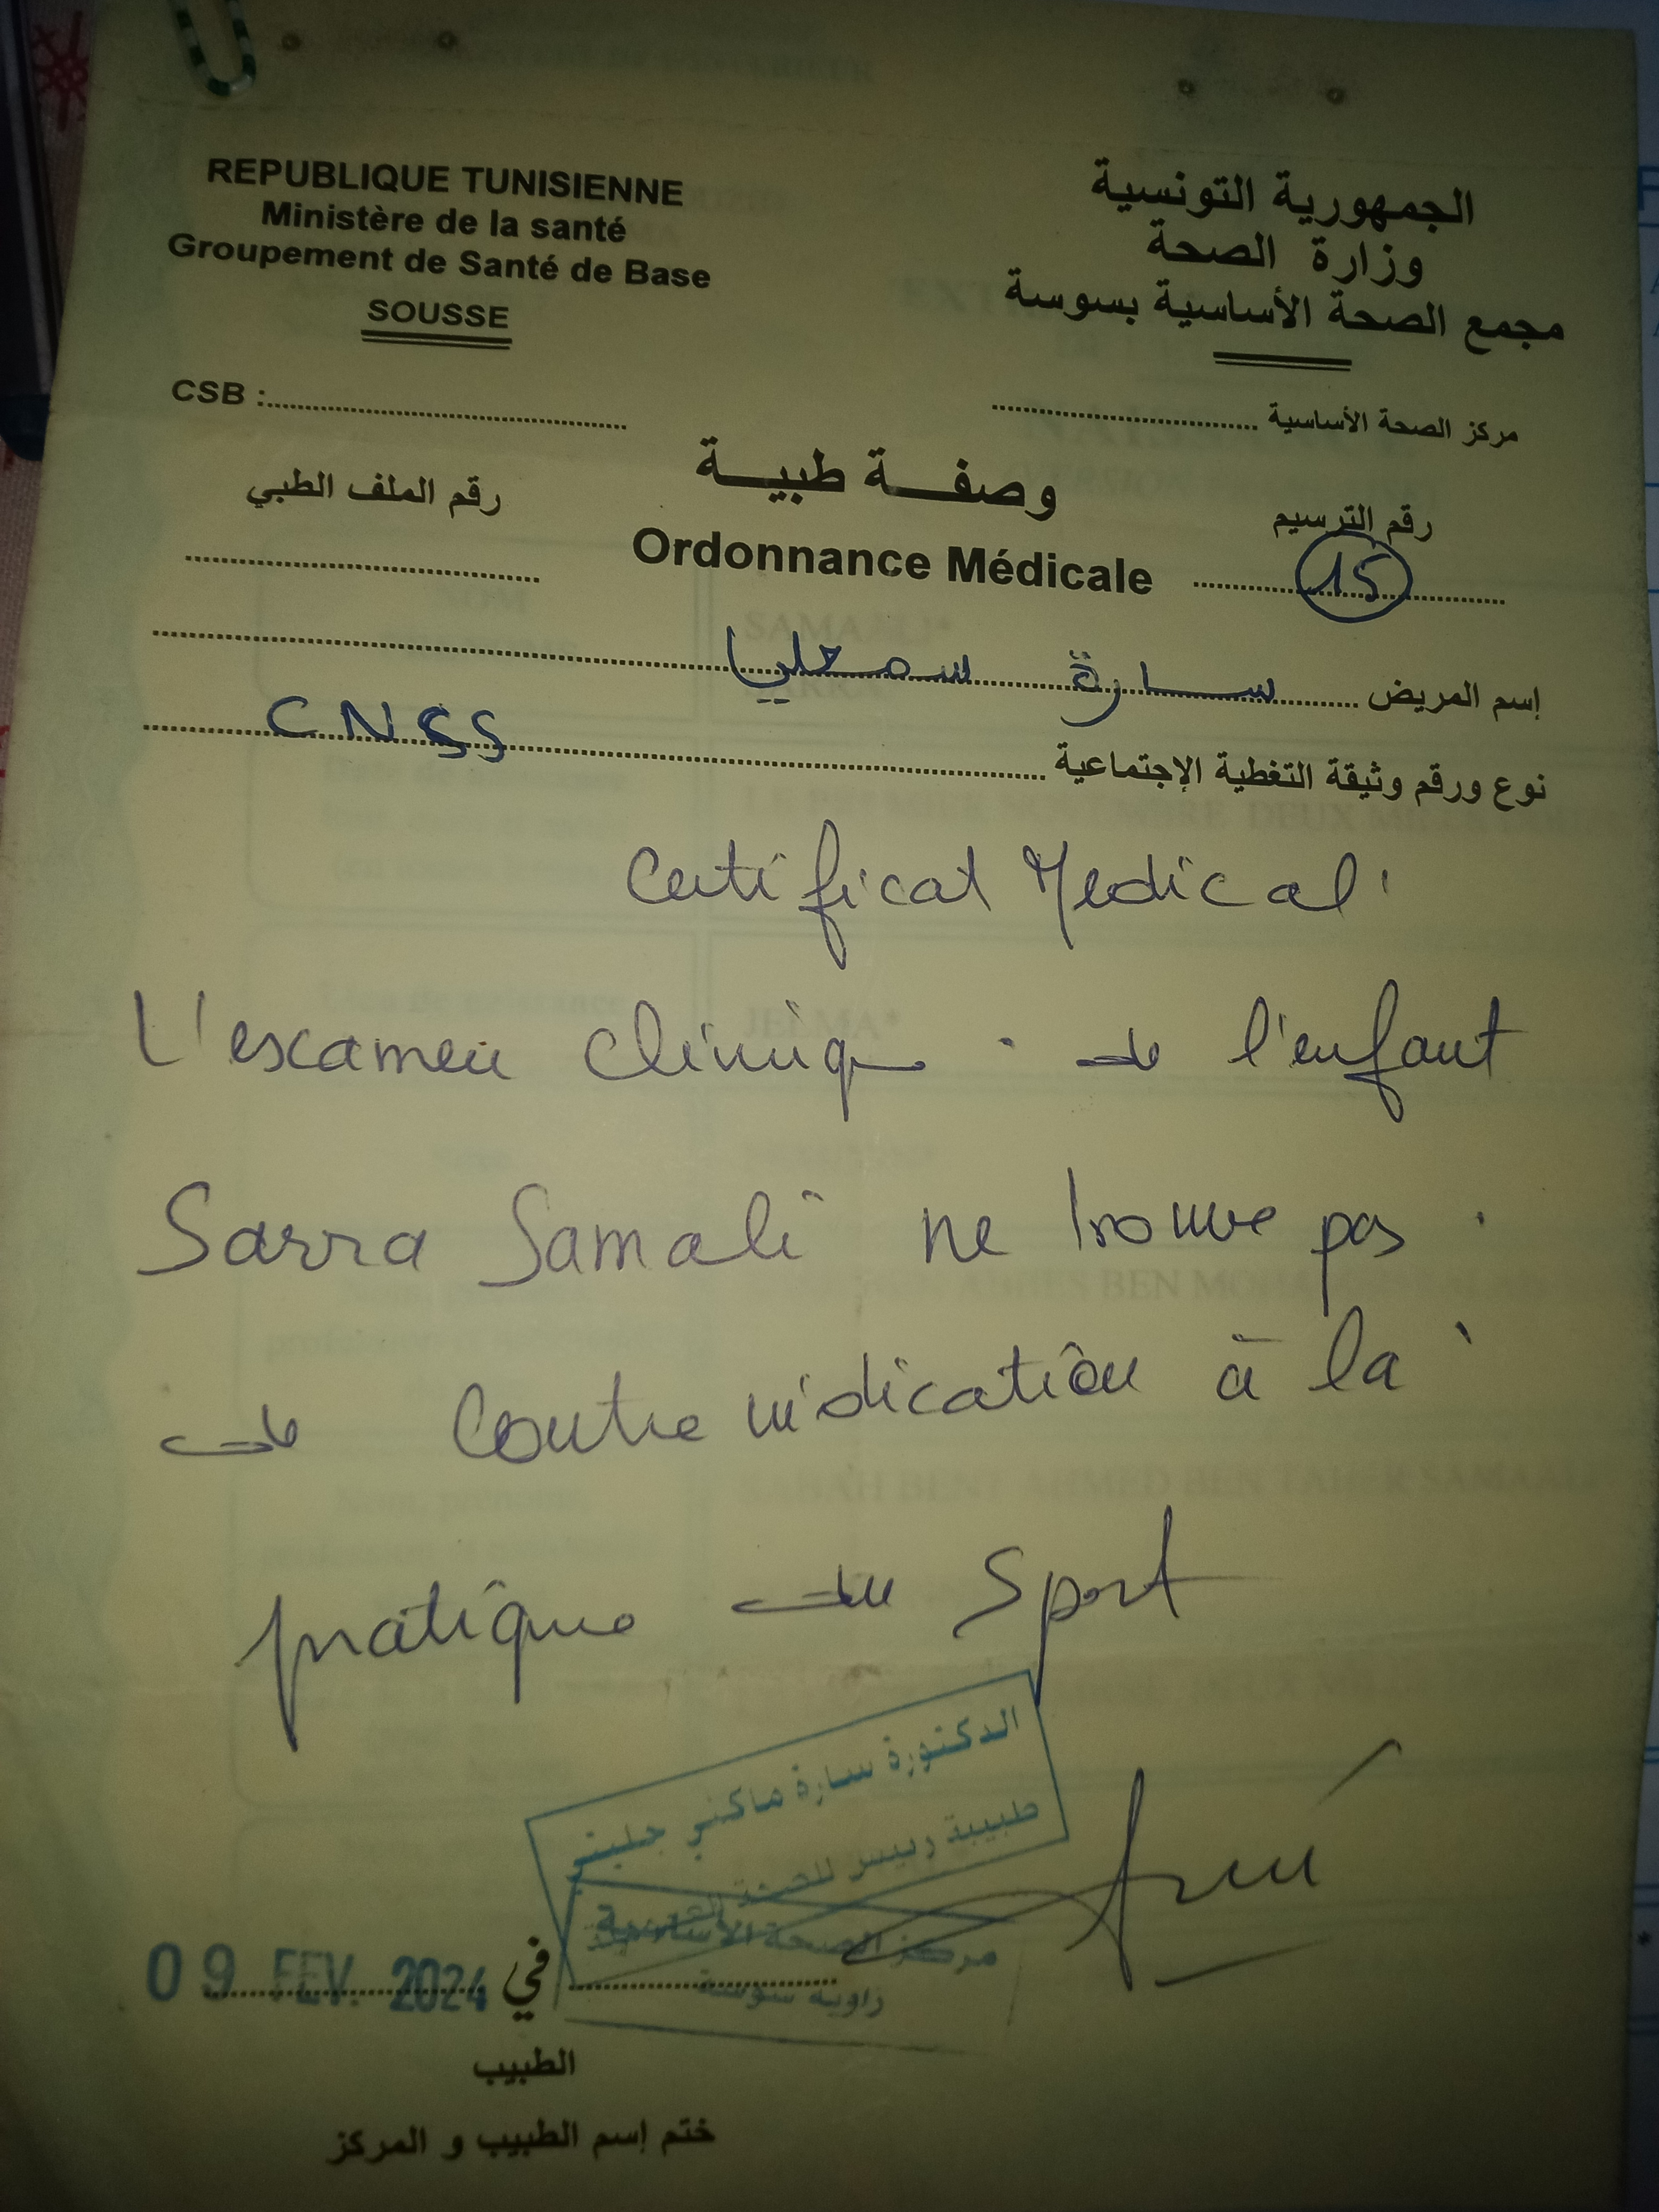 REPUBLIQUE TUNISIENNE
Ministère de la santé
Groupement de Santé de Base
SOUSSE
الجمهورية التونسية
وزارة الصحة
مجمع الصحة الأساسية بسوسة
CSB :
مركز الصحة الأساسية
رقم الملف الطبي
وصفة طبية
Ordonnance Médicale
رقم الترسيم
15
إسم المريض سارة سمعلي
نوع ورقم وثيقة التغطية الإجتماعية CNSS
Certificat Medical
L'examen clinique de l'enfant
Sarra Samali ne trouve pas
de contre indication à la
pratique du Sport
الدكتورة سارة ماكني جليتي
طبيبة رييس للصحة
مركز الصحة الأساسية
زاوية سوسة
في 09 FEV. 2024
الطبيب
ختم إسم الطبيب و المركز